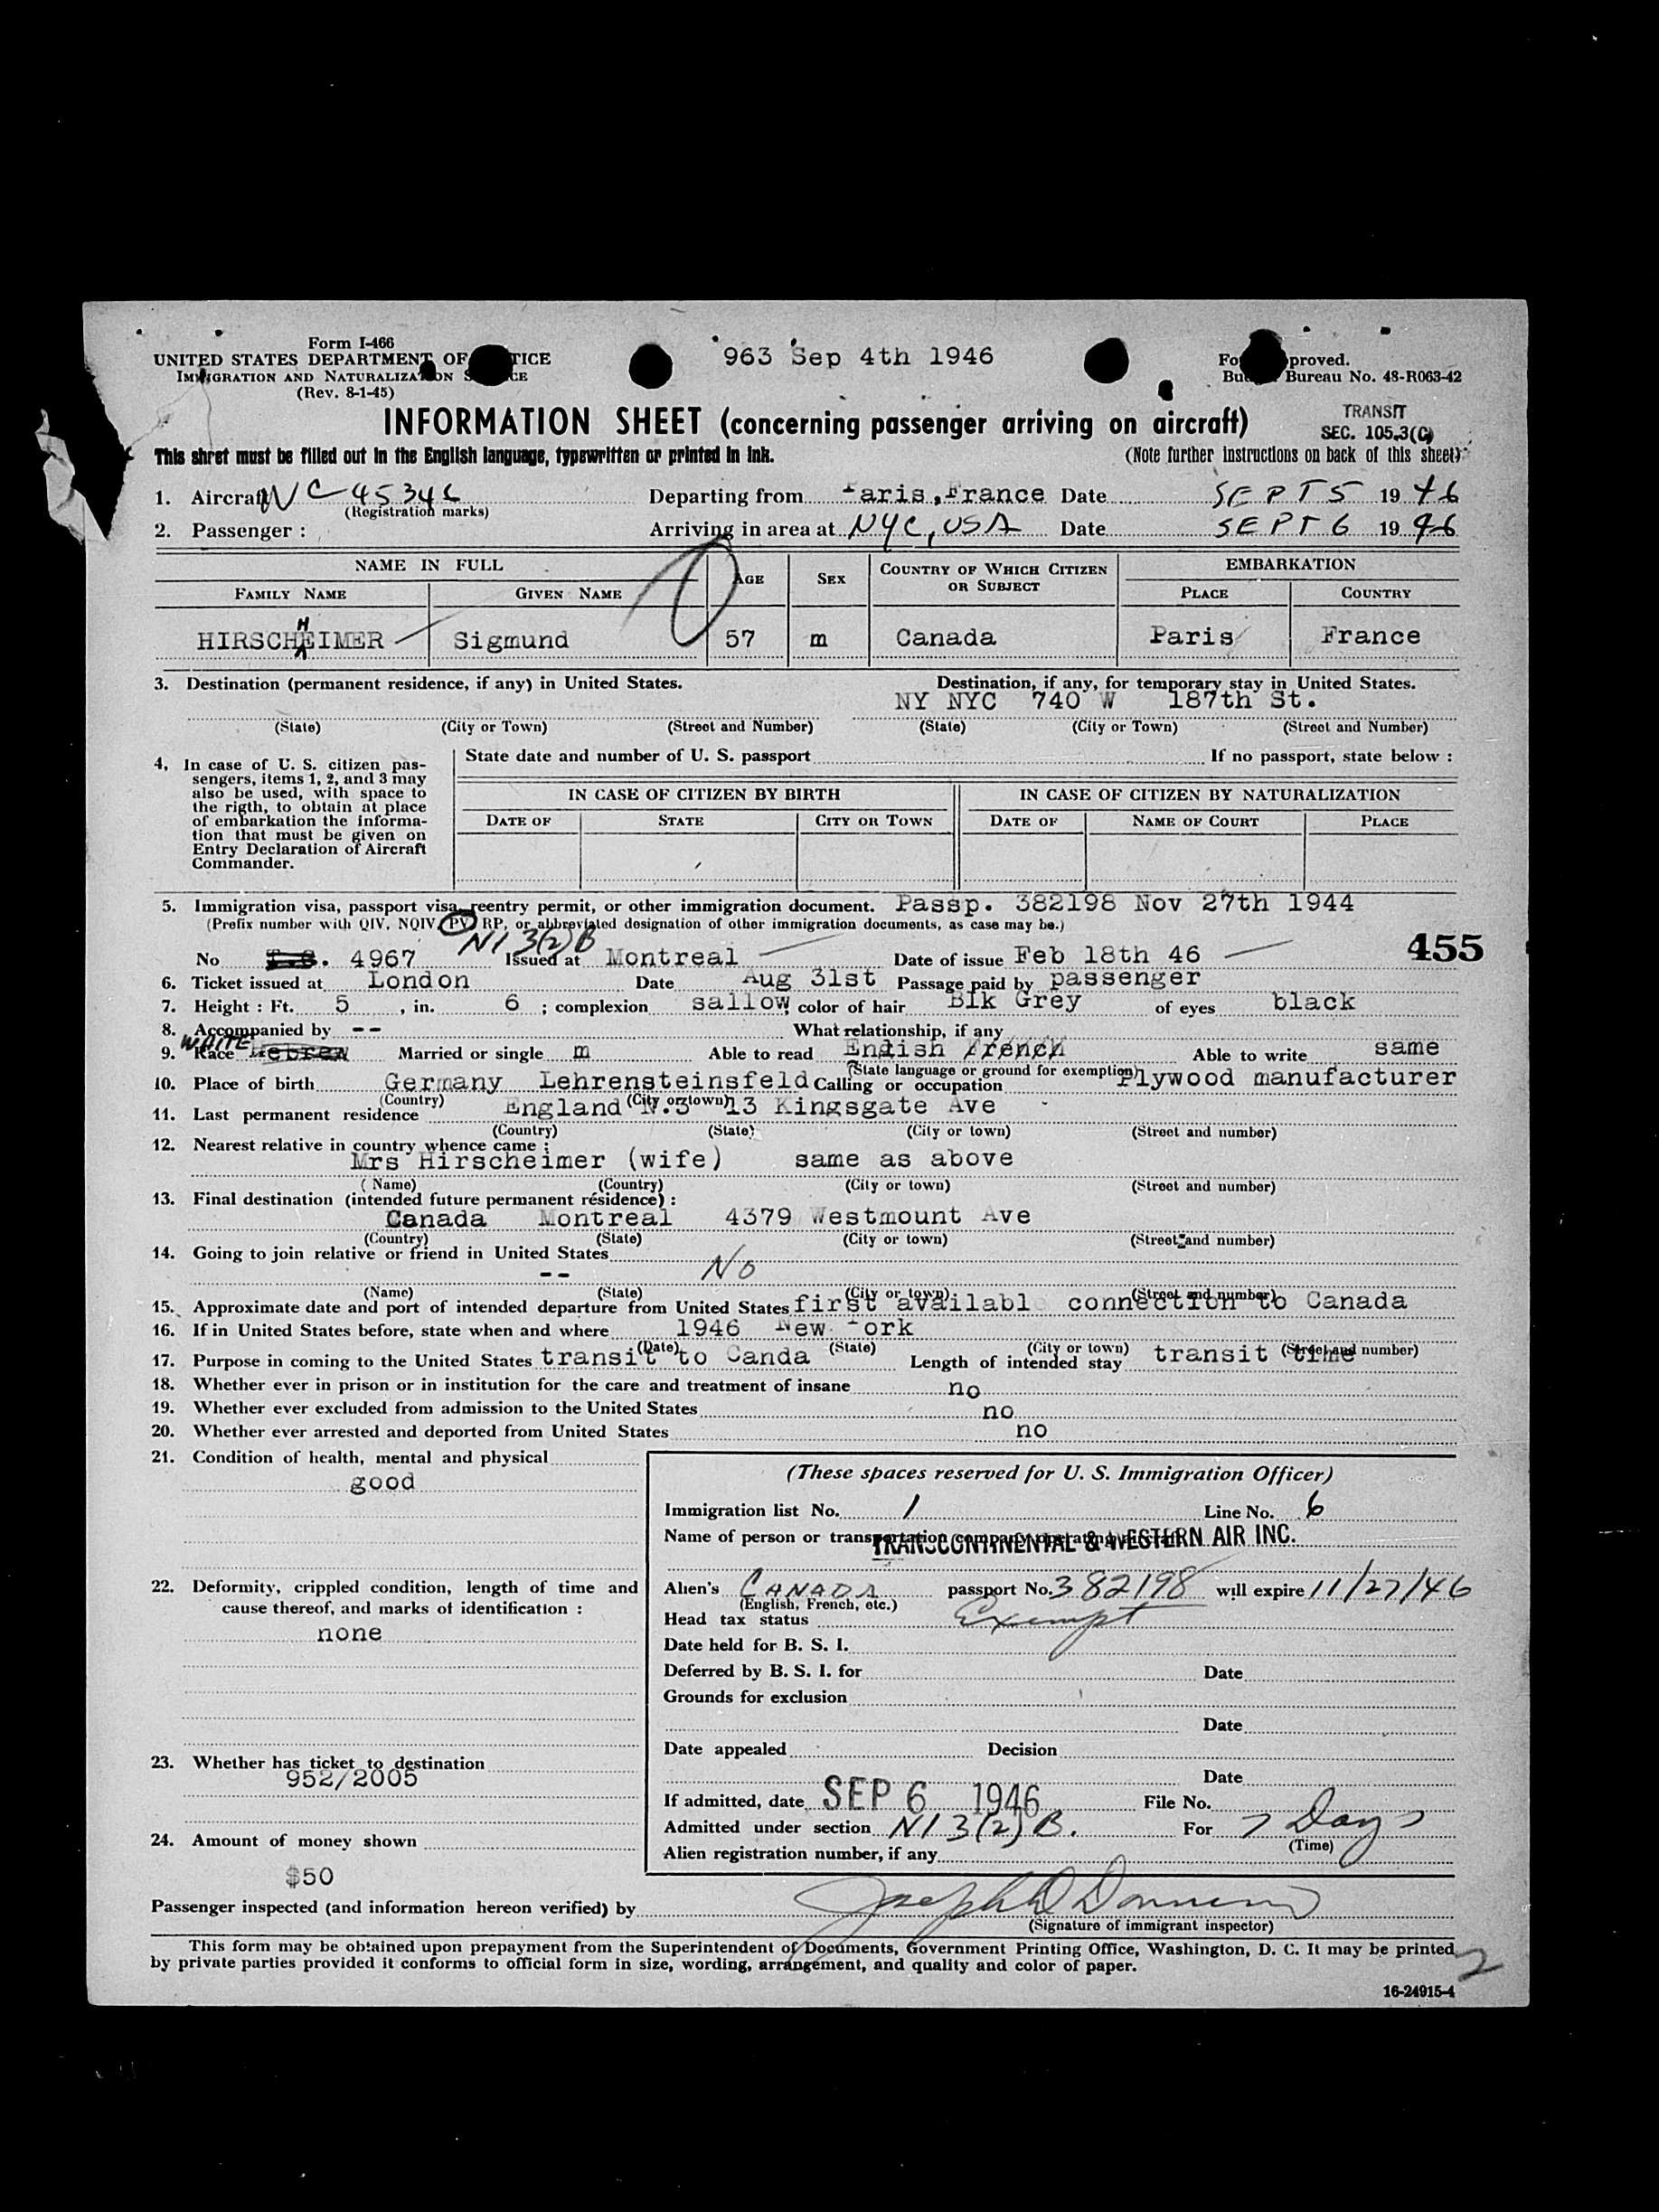 Form I-466
UNITED STATES DEPARTMENT OF TICE
IMMIGRATION AND NATURALIZATION S CE
(Rev. 8-1-45)
963 Sep 4th 1946
Fo proved.
Bu Bureau No. 48-R063-42
INFORMATION SHEET (concerning passenger arriving on aircraft)
TRANSIT
SEC. 105.3(C)
This shret must be filled out in the English language, typswritten or printed in ink. (Note further instructions on back of this sheet)
1. Aircraft NC 45346 Departing from Paris, France Date SEPT 5 1946
(Registration marks)
2. Passenger : Arriving in area at NYC, USA Date SEPT 6 1946
NAME IN FULL AGE SEX COUNTRY OF WHICH CITIZEN OR SUBJECT EMBARKATION
FAMILY NAME GIVEN NAME PLACE COUNTRY
H
HIRSCHEIMER Sigmund 57 m Canada Paris France
3. Destination (permanent residence, if any) in United States. Destination, if any, for temporary stay in United States.
NY NYC 740 W 187th St.
(State) (City or Town) (Street and Number) (State) (City or Town) (Street and Number)
4, In case of U. S. citizen pas-
sengers, items 1, 2, and 3 may
also be used, with space to
the rigth, to obtain at place
of embarkation the informa-
tion that must be given on
Entry Declaration of Aircraft
Commander.
State date and number of U. S. passport If no passport, state below :
IN CASE OF CITIZEN BY BIRTH IN CASE OF CITIZEN BY NATURALIZATION
DATE OF STATE CITY OR TOWN DATE OF NAME OF COURT PLACE
5. Immigration visa, passport visa, reentry permit, or other immigration document. Passp. 382198 Nov 27th 1944
(Prefix number with QIV, NQIV, PV, RP, or abbreviated designation of other immigration documents, as case may be.)
NI 3(2)B
No 4967 Issued at Montreal Date of issue Feb 18th 46
455
6. Ticket issued at London Date Aug 31st Passage paid by passenger
7. Height : Ft. 5 , in. 6 ; complexion sallow, color of hair Blk Grey of eyes black
8. Accompanied by -- What relationship, if any
WHITE
9. Race Hebrew Married or single m Able to read Enlish french Able to write same
(State language or ground for exemption)
10. Place of birth Germany Lehrensteinsfeld Calling or occupation Plywood manufacturer
(Country) (City or town)
11. Last permanent residence England N.3 13 Kingsgate Ave
(Country) (State) (City or town) (Street and number)
12. Nearest relative in country whence came :
Mrs Hirscheimer (wife) same as above
( Name) (Country) (City or town) (Street and number)
13. Final destination (intended future permanent résidence) :
Canada Montreal 4379 Westmount Ave
(Country) (State) (City or town) (Street and number)
14. Going to join relative or friend in United States
-- No
(Name) (State) (City or town) (Street and number)
15. Approximate date and port of intended departure from United States first availabl connection to Canada
16. If in United States before, state when and where 1946 New York
(Date) (State) (City or town) (Street and number)
17. Purpose in coming to the United States transit to Canda Length of intended stay transit time
18. Whether ever in prison or in institution for the care and treatment of insane no
19. Whether ever excluded from admission to the United States no
20. Whether ever arrested and deported from United States no
21. Condition of health, mental and physical
good
22. Deformity, crippled condition, length of time and
cause thereof, and marks of identification :
none
23. Whether has ticket to destination
952/2005
24. Amount of money shown
$50
(These spaces reserved for U. S. Immigration Officer)
Immigration list No. 1 Line No. 6
Name of person or transportation company operating aircraft
TRANSCONTINENTAL & WESTERN AIR INC.
Alien's CANADA passport No. 382198 will expire 11/27/46
(English, French, etc.)
Head tax status Exempt
Date held for B. S. I.
Deferred by B. S. I. for Date
Grounds for exclusion
Date
Date appealed Decision
Date
If admitted, date SEP 6 1946 File No.
Admitted under section NI 3(2)B. For 7 Days
(Time)
Alien registration number, if any
Passenger inspected (and information hereon verified) by
(Signature of immigrant inspector)
This form may be obtained upon prepayment from the Superintendent of Documents, Government Printing Office, Washington, D. C. It may be printed
by private parties provided it conforms to official form in size, wording, arrangement, and quality and color of paper.
2
16-24915-4